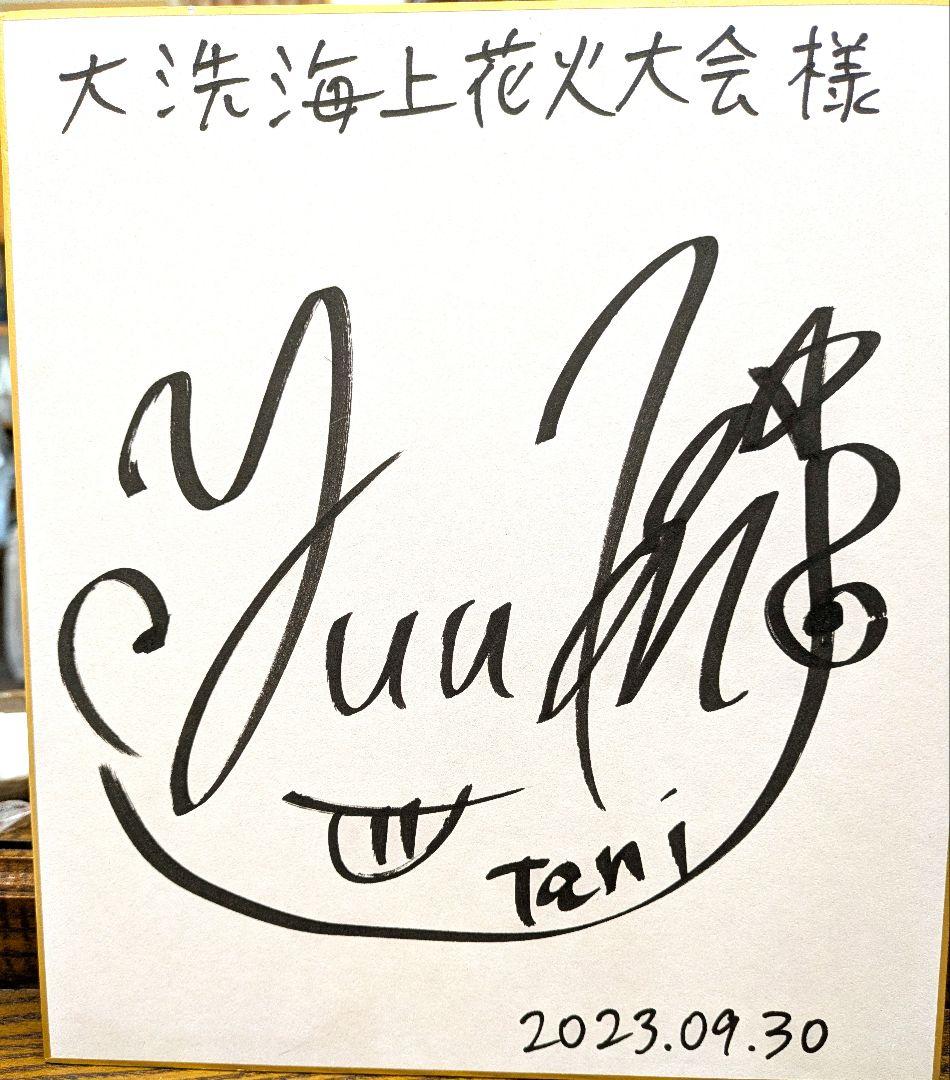 大洗海上花火大会様
Yuu
Tani
2023.09.30